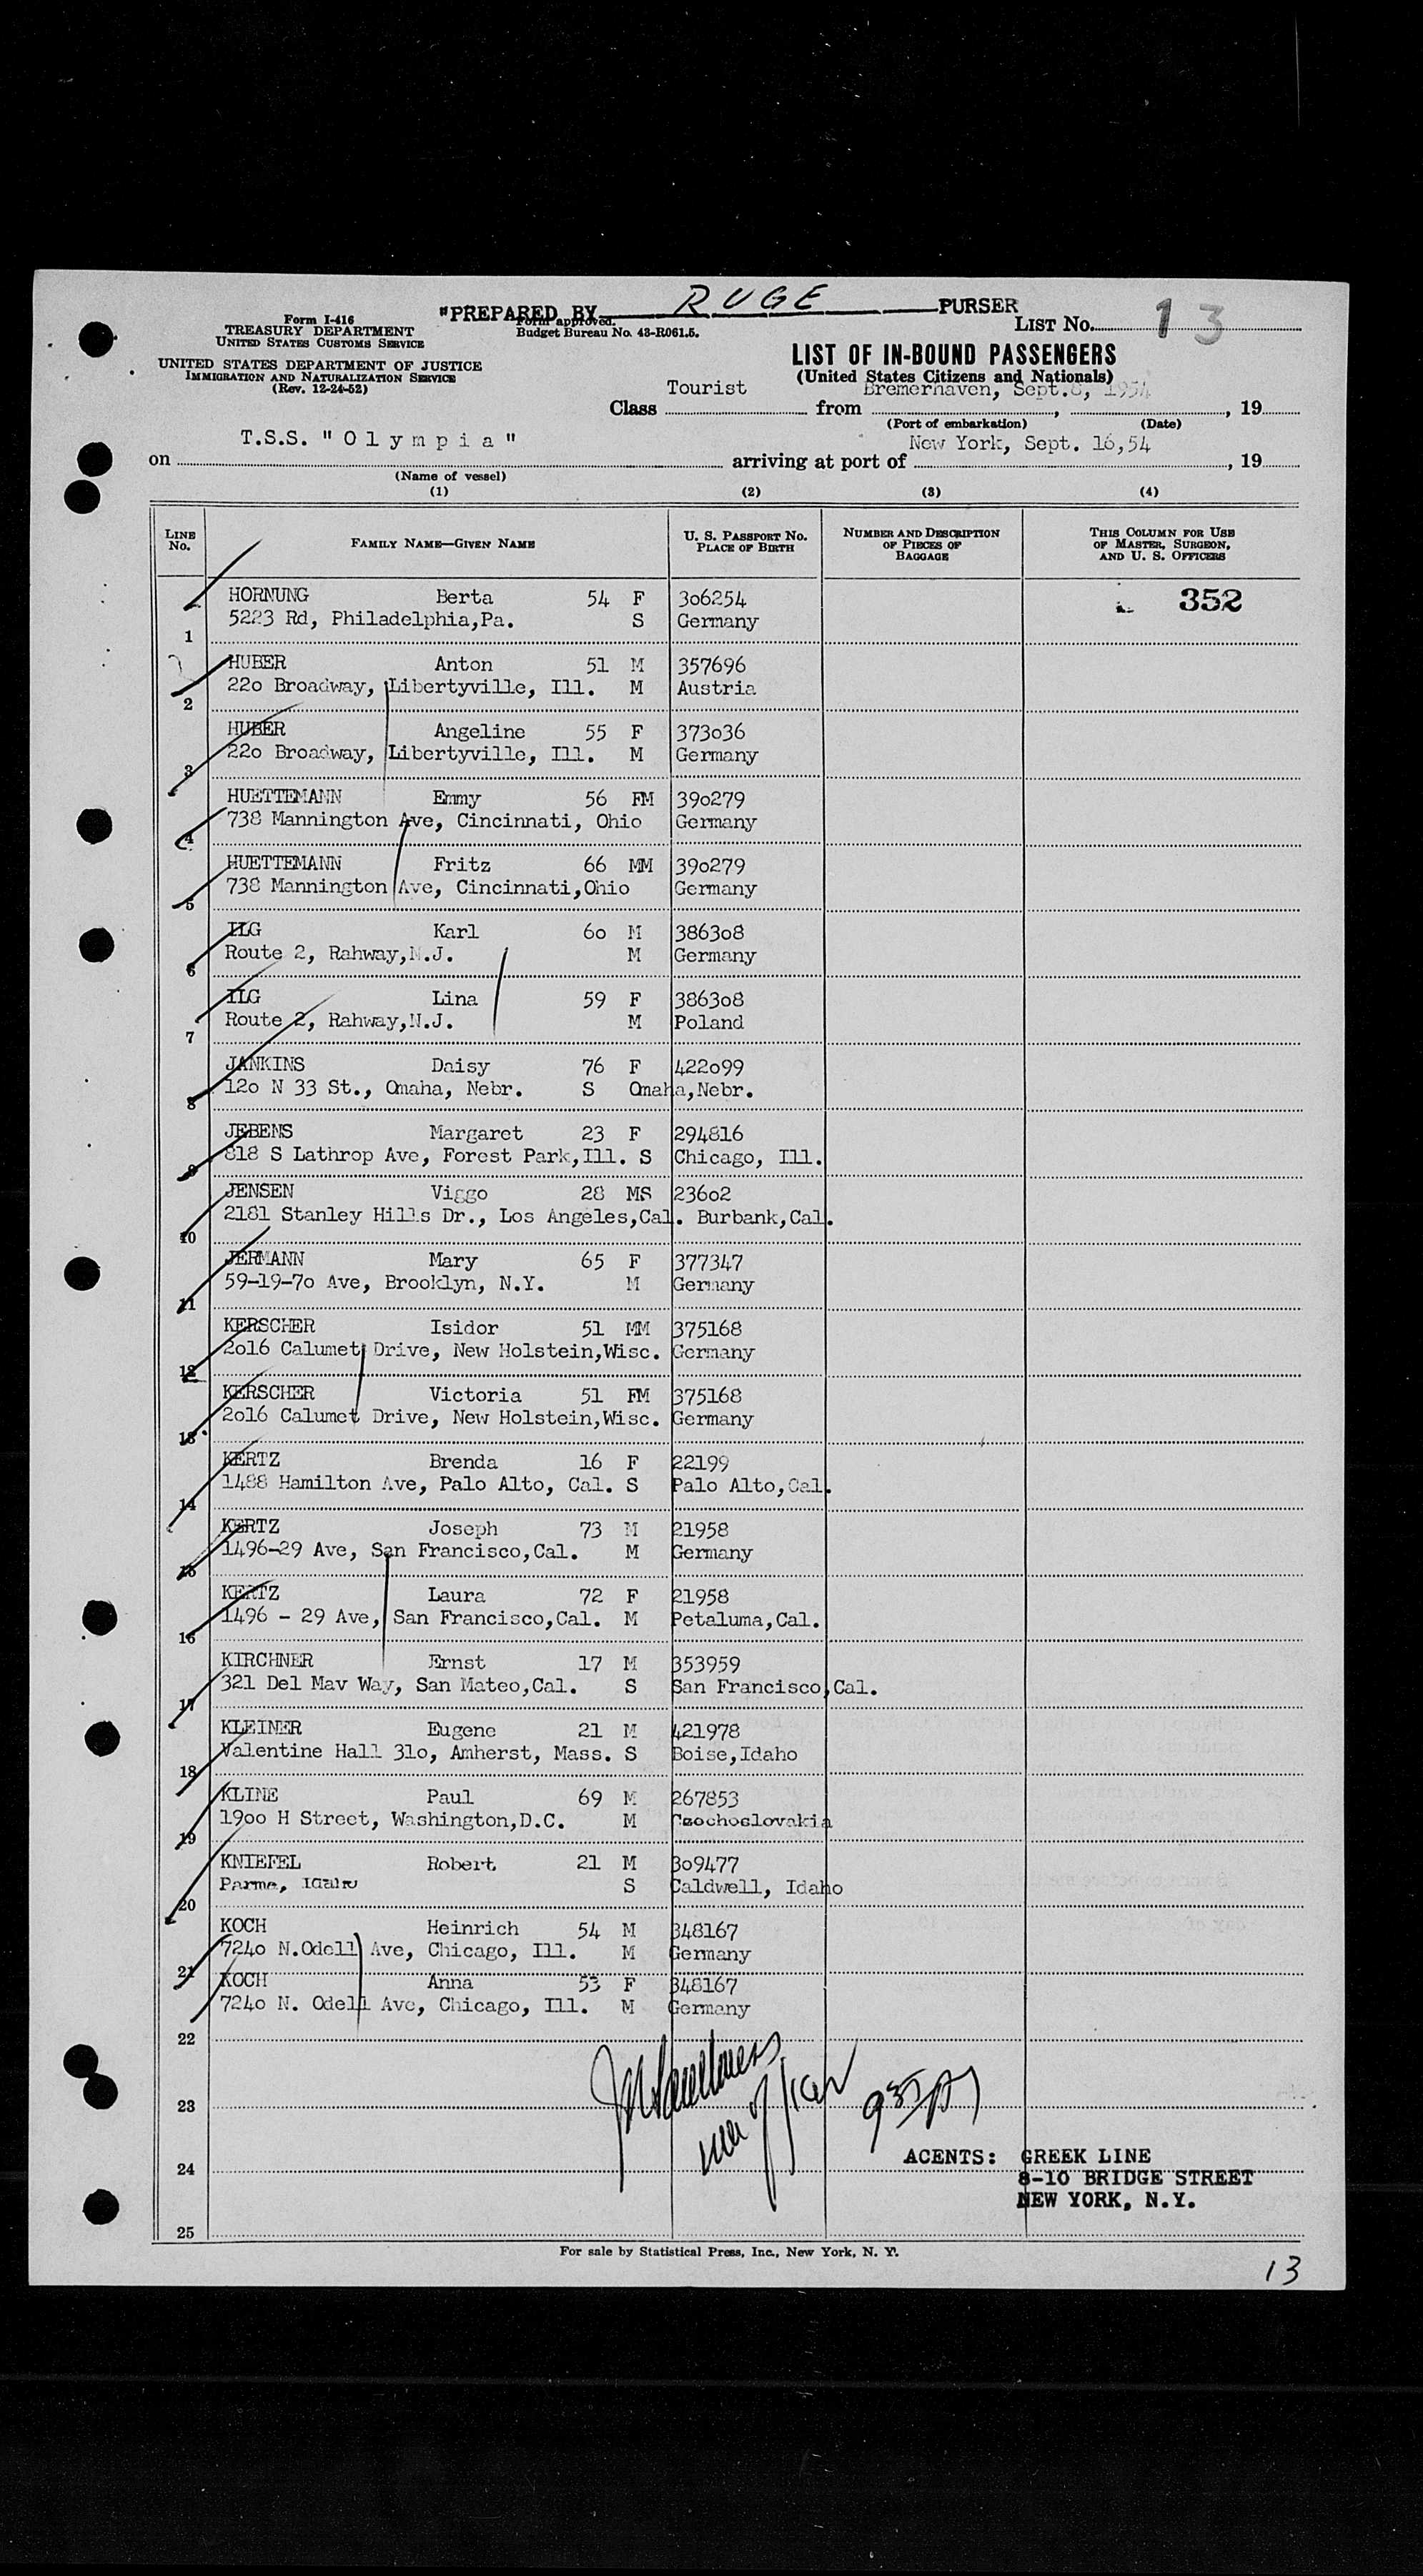 "PREPARED BY RUGE PURSER
Form I-416
TREASURY DEPARTMENT
UNITED STATES CUSTOMS SERVICE
Form approved.
Budget Bureau No. 43-R061.5.
LIST NO. 13
UNITED STATES DEPARTMENT OF JUSTICE
IMMIGRATION AND NATURALIZATION SERVICE
(Rev. 12-24-52)
LIST OF IN-BOUND PASSENGERS
(United States Citizens and Nationals)
Class Tourist from Bremerhaven, Sept.8, 1954, 19
(Port of embarkation) (Date)
on T.S.S. "Olympia" arriving at port of New York, Sept. 16,54, 19
(Name of vessel)
(1) (2) (3) (4)
LINE NO. FAMILY NAME—GIVEN NAME U. S. PASSPORT NO. PLACE OF BIRTH NUMBER AND DESCRIPTION OF PIECES OF BAGGAGE THIS COLUMN FOR USE OF MASTER, SURGEON, AND U. S. OFFICERS
HORNUNG Berta 54 F 306254 352
5223 Rd, Philadelphia,Pa. S Germany
1
HUBER Anton 51 M 357696
220 Broadway, Libertyville, Ill. M Austria
2
HUBER Angeline 55 F 373036
220 Broadway, Libertyville, Ill. M Germany
3
HUETTEMANN Emmy 56 FM 390279
738 Mannington Ave, Cincinnati, Ohio Germany
4
HUETTEMANN Fritz 66 MM 390279
738 Mannington Ave, Cincinnati,Ohio Germany
5
ILG Karl 60 M 386308
Route 2, Rahway,N.J. M Germany
6
ILG Lina 59 F 386308
Route 2, Rahway,N.J. M Poland
7
JANKINS Daisy 76 F 422099
120 N 33 St., Omaha, Nebr. S Omaha,Nebr.
8
JEBENS Margaret 23 F 294816
818 S Lathrop Ave, Forest Park,Ill. S Chicago, Ill.
9
JENSEN Viggo 28 MS 23602
2181 Stanley Hills Dr., Los Angeles,Cal. Burbank,Cal.
10
JERMANN Mary 65 F 377347
59-19-70 Ave, Brooklyn, N.Y. M Germany
11
KERSCHER Isidor 51 MM 375168
2016 Calumet Drive, New Holstein,Wisc. Germany
12
KERSCHER Victoria 51 FM 375168
2016 Calumet Drive, New Holstein,Wisc. Germany
13
KERTZ Brenda 16 F 22199
1488 Hamilton Ave, Palo Alto, Cal. S Palo Alto,Cal.
14
KERTZ Joseph 73 M 21958
1496-29 Ave, San Francisco,Cal. M Germany
15
KERTZ Laura 72 F 21958
1496 - 29 Ave, San Francisco,Cal. M Petaluma,Cal.
16
KIRCHNER Ernst 17 M 353959
321 Del Mav Way, San Mateo,Cal. S San Francisco,Cal.
17
KLEINER Eugene 21 M 421978
Valentine Hall 310, Amherst, Mass. S Boise,Idaho
18
KLINE Paul 69 M 267853
1900 H Street, Washington,D.C. M Czechoslovakia
19
KNIEFEL Robert 21 M 309477
Parma, Idaho S Caldwell, Idaho
20
KOCH Heinrich 54 M 348167
7240 N.Odell Ave, Chicago, Ill. M Germany
21
KOCH Anna 53 F 348167
7240 N. Odell Ave, Chicago, Ill. M Germany
22
23
24
ACENTS: GREEK LINE
8-10 BRIDGE STREET
NEW YORK, N.Y.
25
For sale by Statistical Press, Inc., New York, N. Y.
13